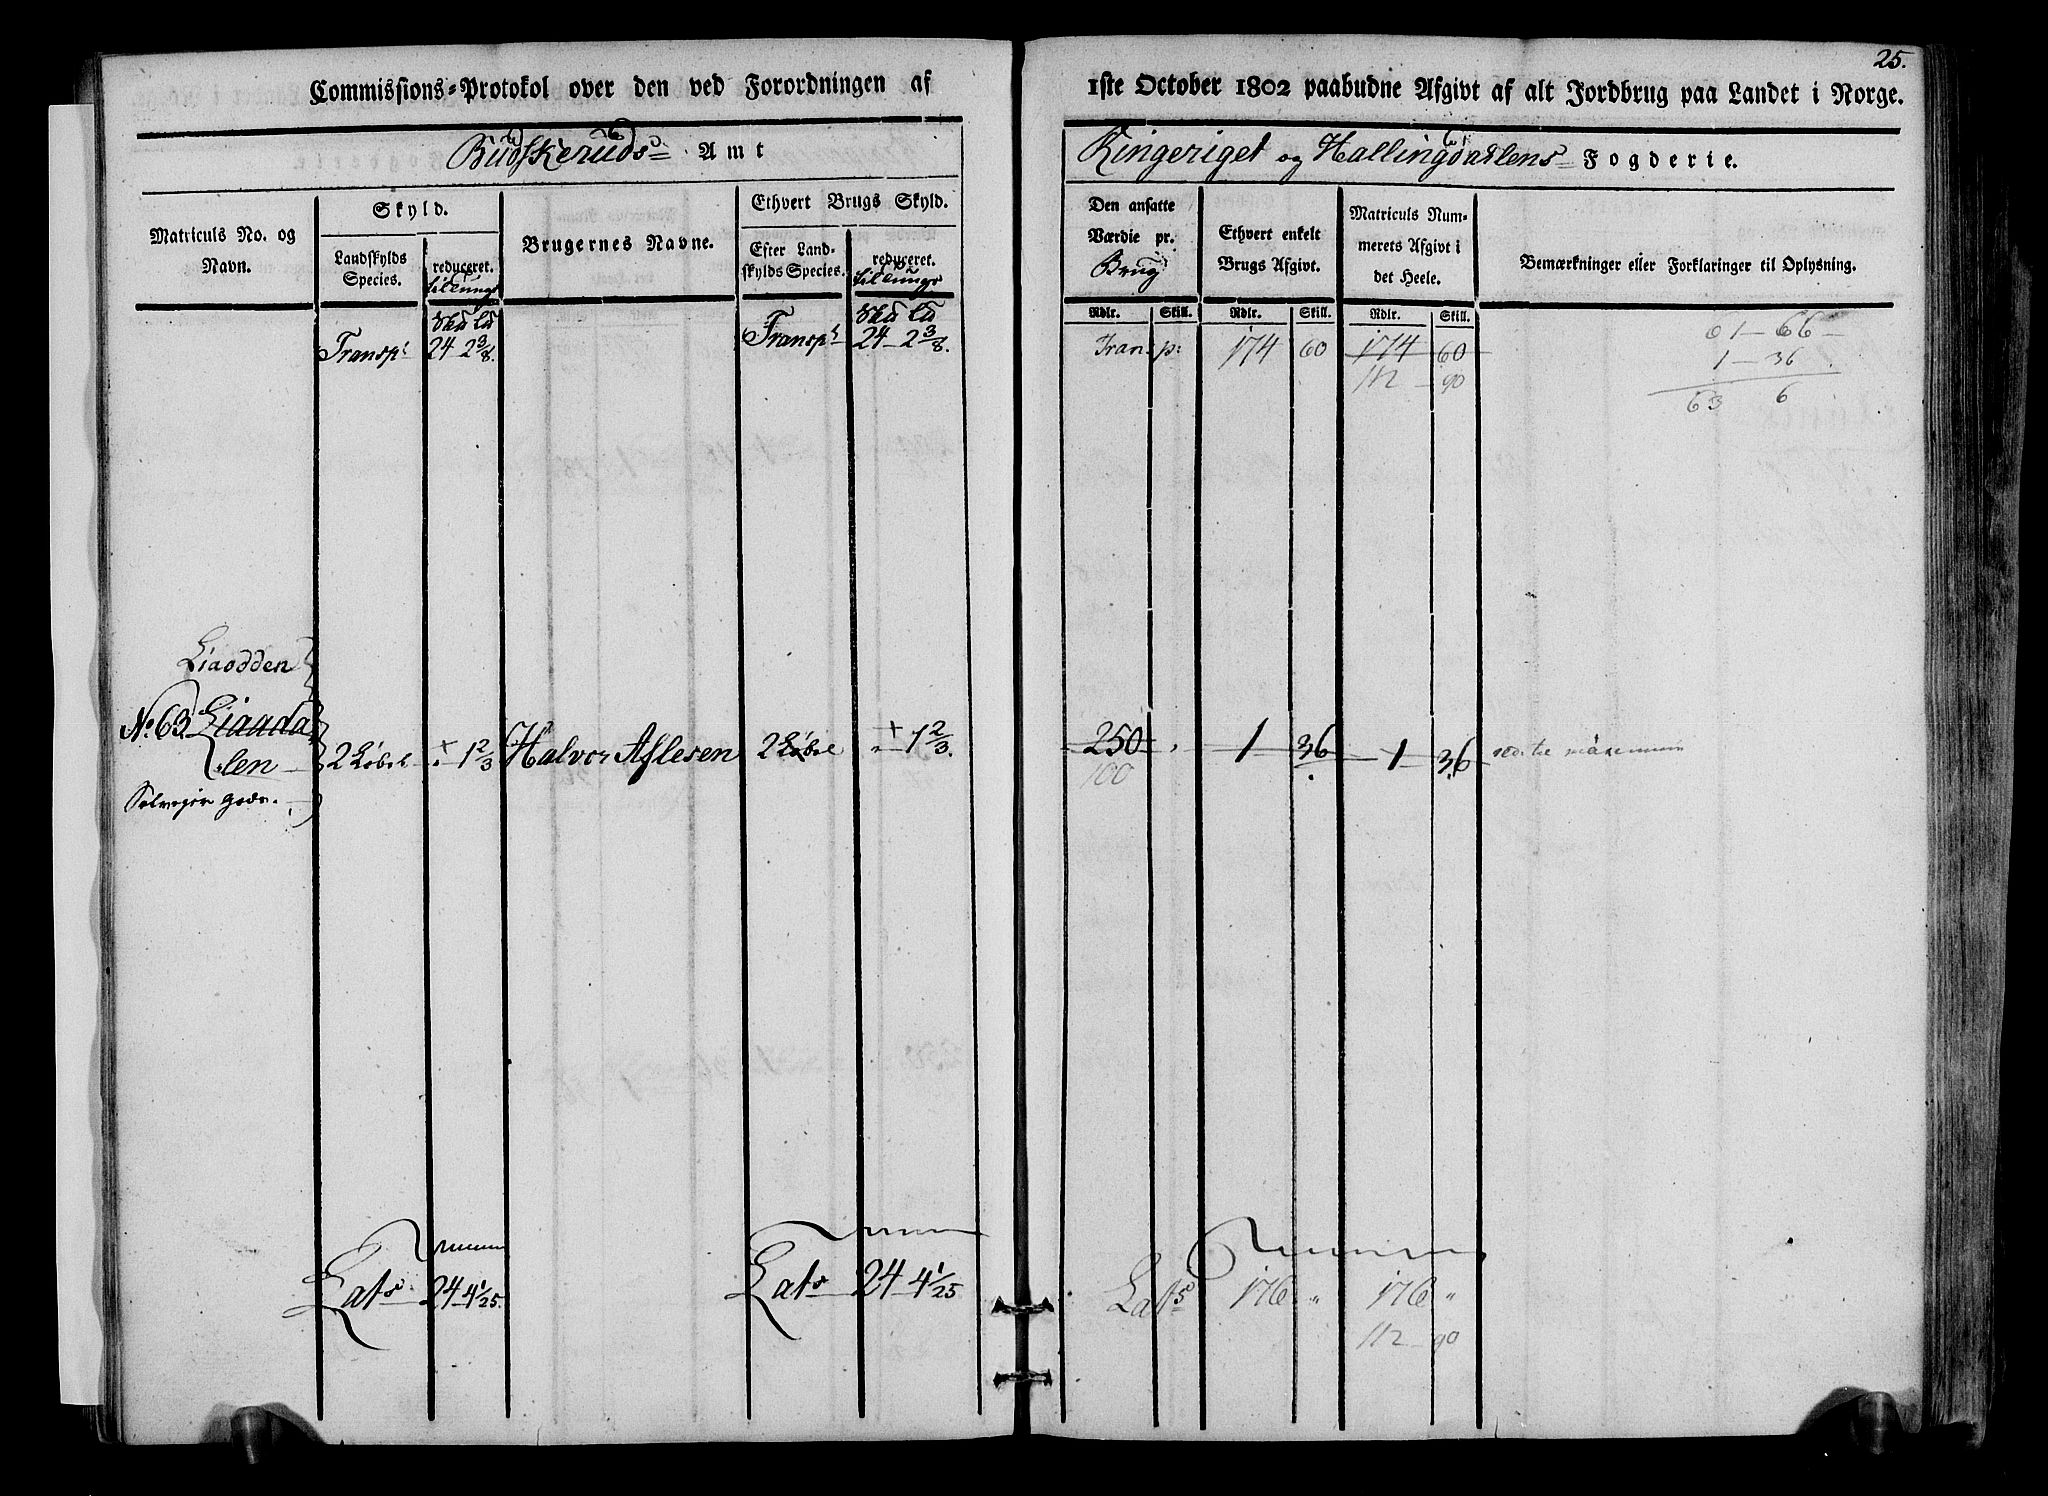 25.
Commissions-Protokol over den ved Forordningen af 1ste October 1802 paabudne Afgivt af alt Jordbrug paa Landet i Norge.
Budskeruds Amt
Ringeriget og Hallingdahlens Fogderie.
Matriculs No. og Navn.
Skyld.
Landskylds Species.
reduceret.
Brugernes Navne.
Ethvert Brugs Skyld.
Efter Landskylds Species.
reduceret.
Den ansatte Værdie pr. Brug
Ethvert enkelt Brugs Afgivt.
Matriculs Nummerets Afgivt i det Heele.
Bemærkninger eller Forklaringer til Oplysning.
Rdlr. Skill. Rdlr. Skill. Rdlr. Skill.
Transpt 24 - 2 3/8. Transpt 24 - 2 3/8. Transp: 174 60 174 60
112 - 90
61 - 66 -
1 - 36
63 6
Liaodden
No. 63 Liaada
len 2 Løbel 1 2/3 Halvor Aslesen 2 Løbel 1 2/3. 250 1 36 1 36
100
Lats 24 4 1/25. Lats 24 4 1/25 Lats 176 " 176 "
112 - 90